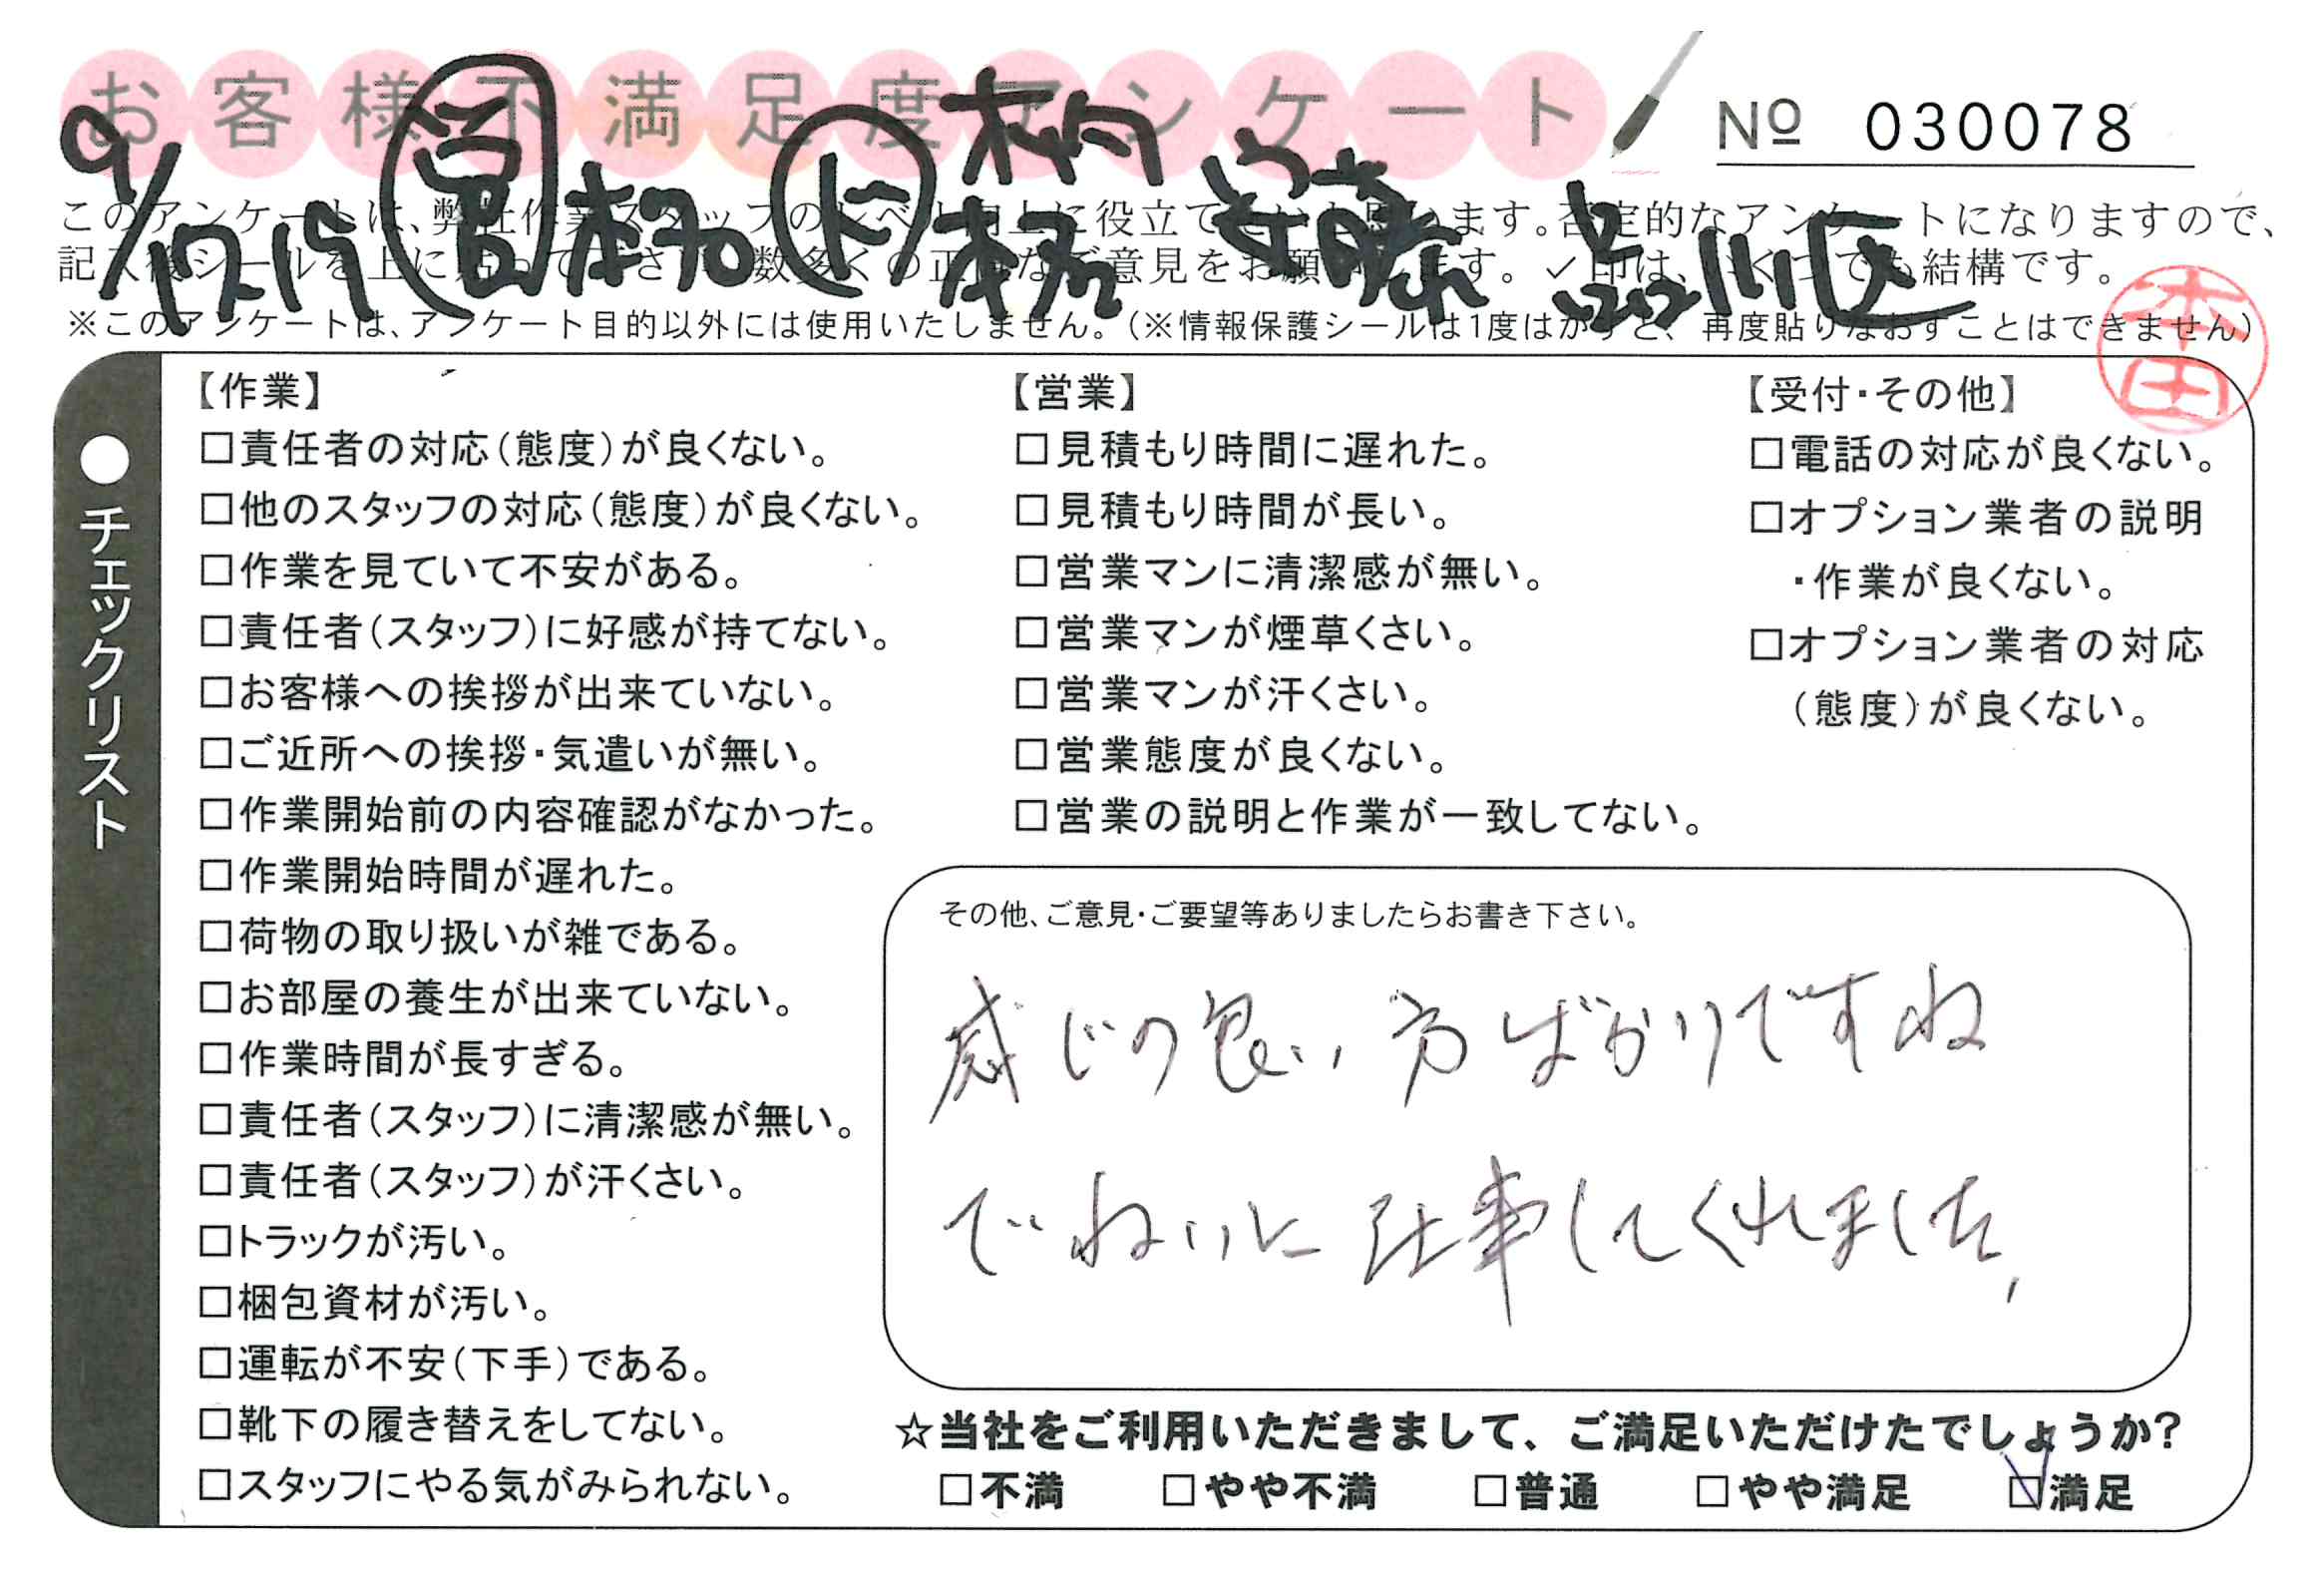 お客様不満足度アンケート
№ 030078
9/17.19 営 ト 安藤 品川区
このアンケートは、弊社作業スタッフのレベル向上に役立てたいと思います。否定的なアンケートになりますので、
記入後シールを上に貼って下さい。数多くの正直なご意見をお願いします。✓印は、いくつでも結構です。
※このアンケートは、アンケート目的以外には使用いたしません。(※情報保護シールは1度はがすと、再度貼りなおすことはできません)
本田
●チェックリスト
【作業】
□責任者の対応(態度)が良くない。
□他のスタッフの対応(態度)が良くない。
□作業を見ていて不安がある。
□責任者(スタッフ)に好感が持てない。
□お客様への挨拶が出来ていない。
□ご近所への挨拶・気遣いが無い。
□作業開始前の内容確認がなかった。
□作業開始時間が遅れた。
□荷物の取り扱いが雑である。
□お部屋の養生が出来ていない。
□作業時間が長すぎる。
□責任者(スタッフ)に清潔感が無い。
□責任者(スタッフ)が汗くさい。
□トラックが汚い。
□梱包資材が汚い。
□運転が不安(下手)である。
□靴下の履き替えをしてない。
□スタッフにやる気がみられない。
【営業】
□見積もり時間に遅れた。
□見積もり時間が長い。
□営業マンに清潔感が無い。
□営業マンが煙草くさい。
□営業マンが汗くさい。
□営業態度が良くない。
□営業の説明と作業が一致してない。
【受付・その他】
□電話の対応が良くない。
□オプション業者の説明
・作業が良くない。
□オプション業者の対応
(態度)が良くない。
その他、ご意見・ご要望等ありましたらお書き下さい。
感じの良い方ばかりですね
でねいに仕事してくれました、
☆当社をご利用いただきまして、ご満足いただけたでしょうか?
□不満 □やや不満 □普通 □やや満足 ☑満足